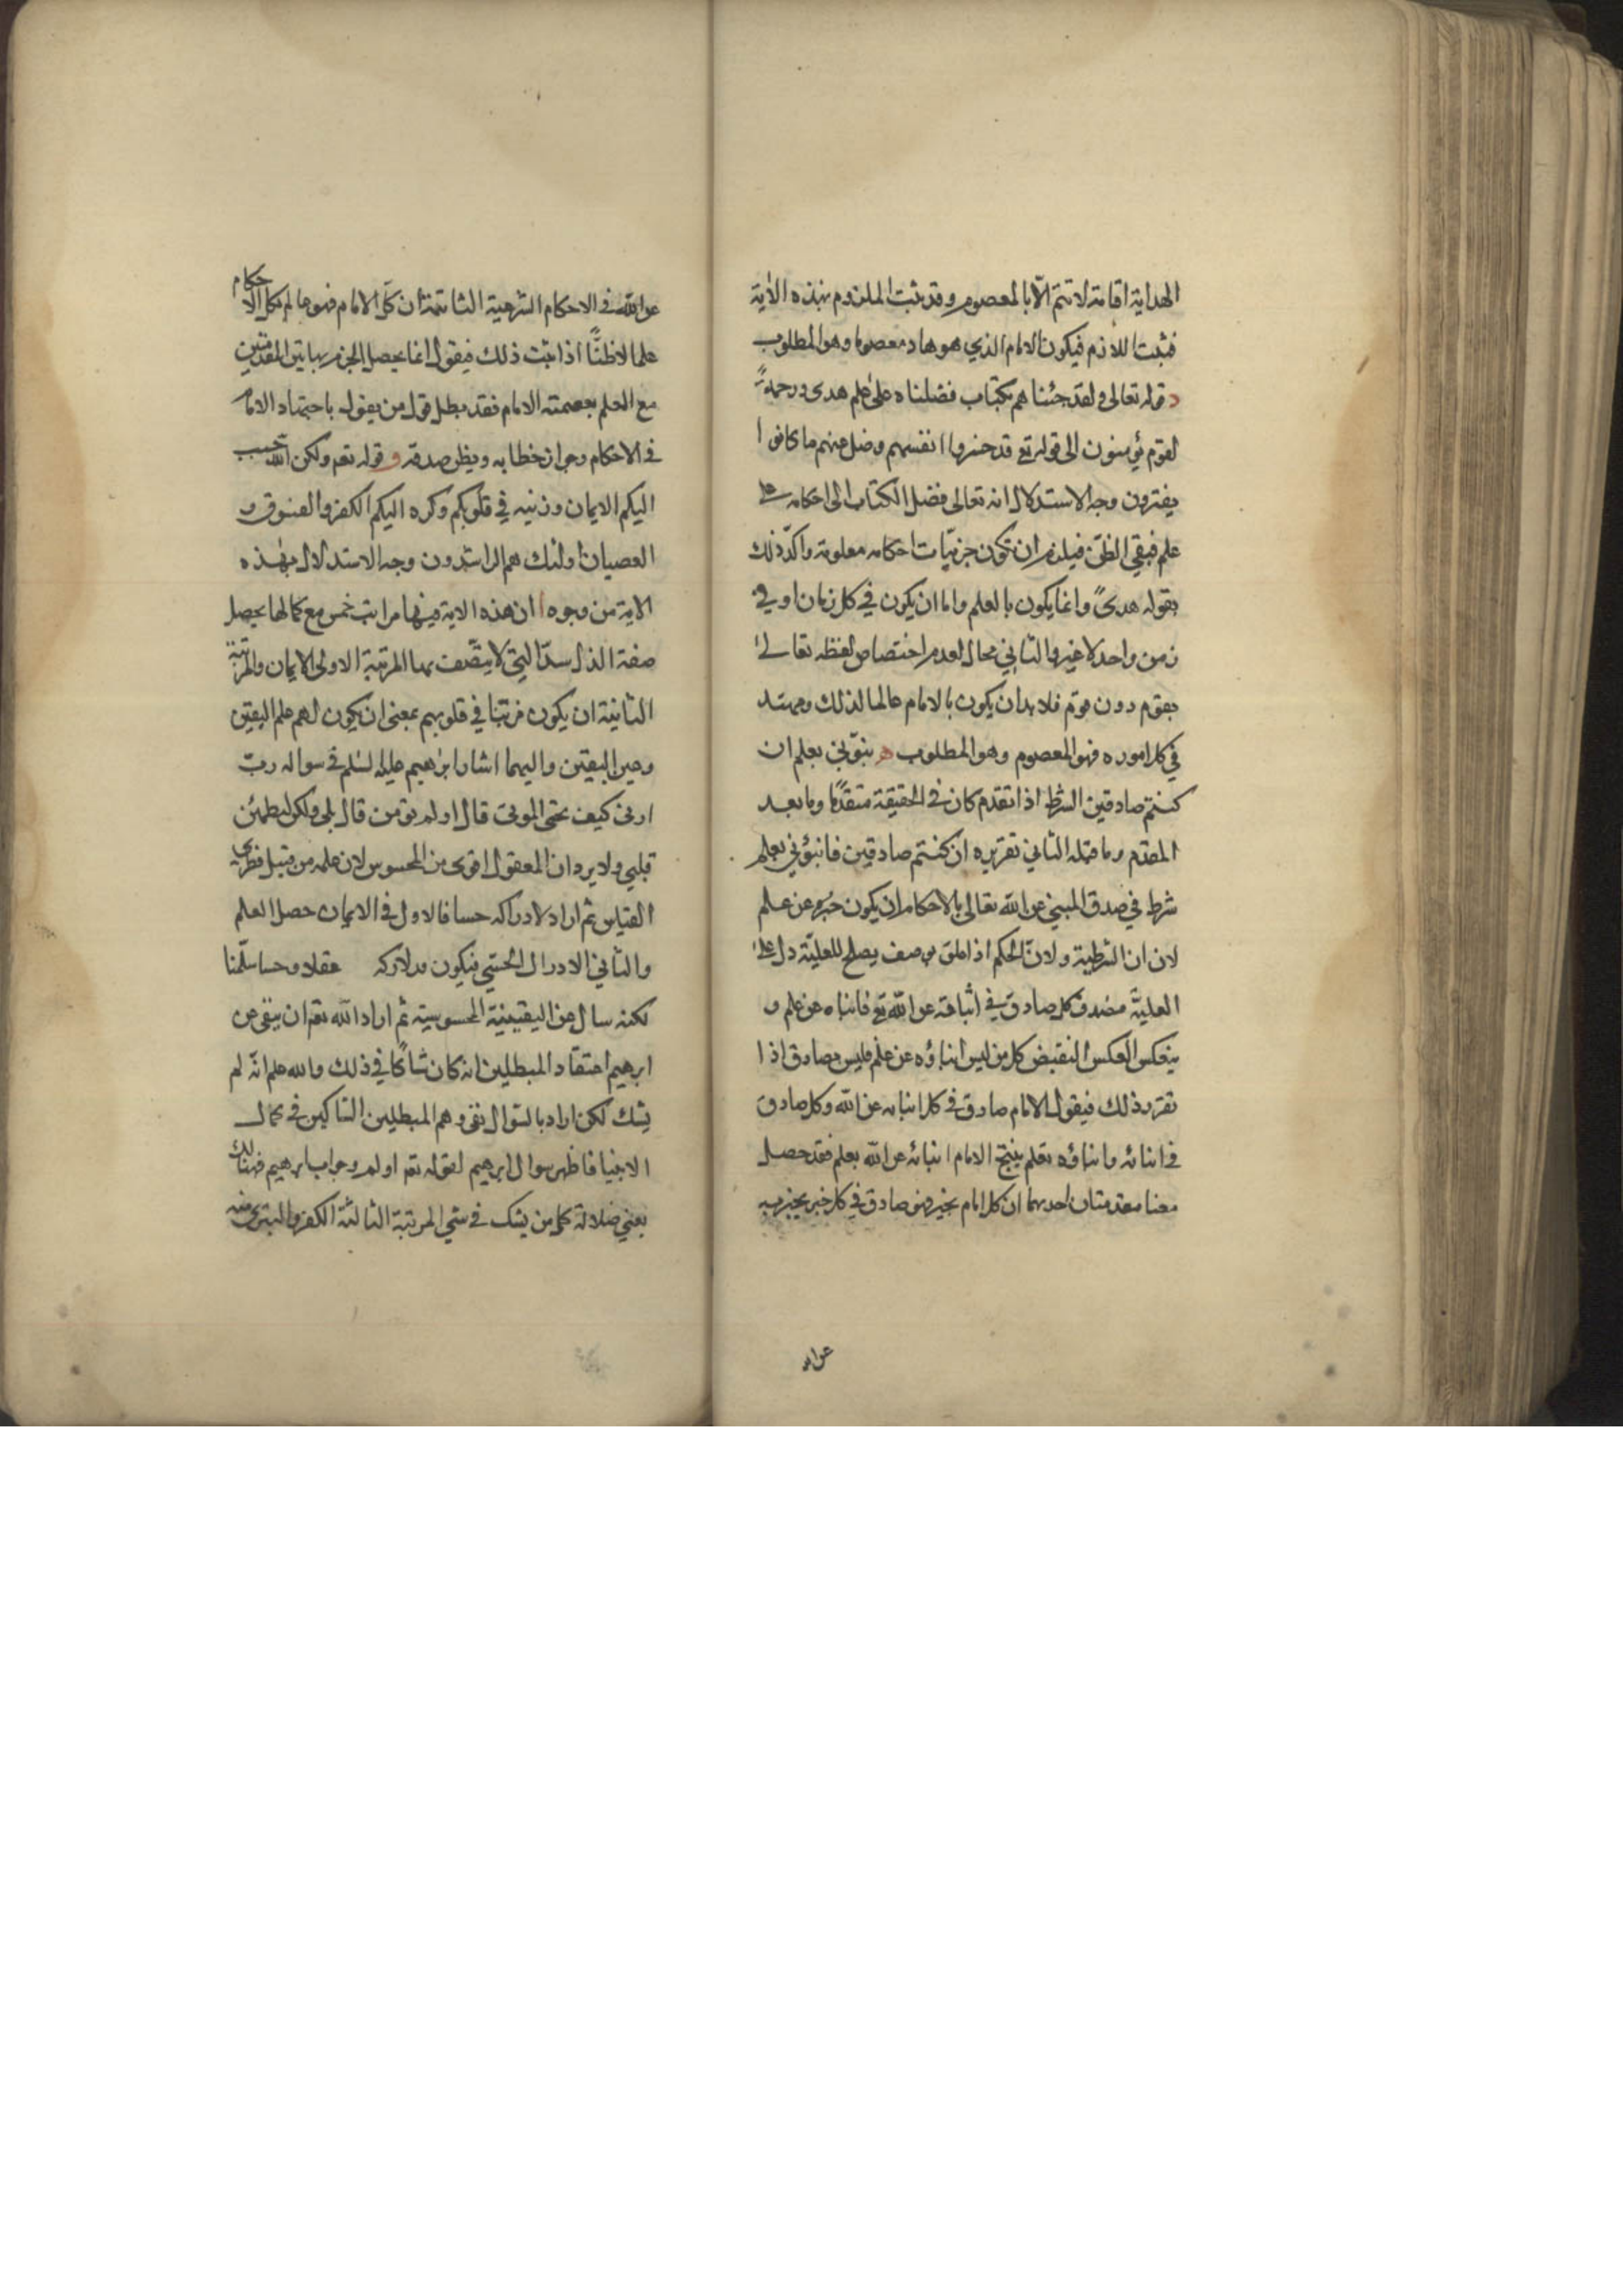 الهداية اقامة لا تتم الّا بالمعصوم وقد ثبت الملزوم بهذه الاية
فثبت اللازم فيكون الامام الذي هو هاد معصوما وهو المطلوب
د قوله تعالى ولقد جئناهم بكتاب فصلناه على علم هدى ورحمةً
لقوم يؤمنون الى قوله تع قد خسروا انفسهم وضل عنهم ما كانوا
يفترون وجه الاستدلال انه تعالى فصل الكتاب الى احكامه على
علم فبقي الظن فيلزم ان تكون جزئيات احكامه معلومة واكّد ذلك
بقوله هدىً وانما يكون بالعلم واما ان يكون في كل زمان او في
زمن واحد لا غير والثاني محال لعدم اختصاص لفظه تعالى
بقوم دون قوم فلا بد ان يكون بالامام عالما لذلك ومهتد
في كل اموره فهو المعصوم وهو المطلوب ه نبؤني بعلم ان
كنتم صادقين الشرط اذا تقدم كان في الحقيقة متقدّما وما بعد
المقدم وما قبله الثاني تقريره ان كنتم صادقين فانبؤني بعلم
شرط في صدق المبني عن الله تعالى بالاحكام ان يكون خبره عن علم
لان ان الشرطية ولانّ الحكم اذا علق بوصف يصلح للعليّة دل على
العليّة فصدق كل صادق في انبائه عن الله تع فانباه عن علم و
ينعكس العكس النقيض كل من ليس انباؤه عن علم فليس بصادق اذا
تقرر ذلك فيقول الامام صادق في كل انبائه عن الله وكل صادق
في انبائه وانباؤه بعلم ينتج الامام انبائه عن الله بعلم فقد حصل
معنا مقدمتان احديهما ان كل امام يخبر فهو صادق في كل خبر يخبر به
عن الله
عن الله في الاحكام الشرعية الثانية ان كل الامام فهو عالم بكل الاحكام
علما لا ظنًّا اذا ثبت ذلك فيقول انما يحصل الجزم بهاتين المقدمتين
مع العلم بعصمته الامام فقد بطل قول من يقول باجتهاد الامام
في الاحكام وجواز خطابه ويظن صدقه و قوله تعم ولكن الله حبب
اليكم الايمان وزينه في قلوبكم وكره اليكم الكفر والفسوق و
العصيان اولئك هم الراشدون وجه الاستدلال بهذه
الاية من وجوه ا ان هذه الاية فيها مراتب خمس مع كمالها يحصل
صفة التي لا يتصف بها المرتبة الاولى الايمان والمرتبة
الثانية ان يكون مزينا في قلوبهم بمعنى ان يكون لهم علم اليقين
وعين اليقين واليهما اشار ابرٰهيم عليه السّلم في سواله ربّ
ارنى كيف تحيى الموتى قال اولم تؤمن قال بلى ولكن ليطمئن
قلبي ولا يرد ان المعقول اقوى من المحسوس لان علمه من قبيل فطرى
القياس ثم اراد لادراكه حسا فالاول في الايمان حصل العلم
والثاني الادراك الحسّي فيكون مدركه عقلا وحسا سلّمنا
لكنه سال عن اليقينية المحسوسية ثم اراد الله تعم ان ينفى عن
ابرهيم اعتقاد المبطلين انه كان شاكًا في ذلك والله علم انه لم
يشك لكن اراد بالسّوال نفى وهم المبطلين الشاكين في كمال
الانبيا فاظهر سوال ابرهيم لقوله تعم اولم وجواب ابرهيم فهنالك
يعني ضلالة كل من يشك في شي المرتبة الثالثة الكفر والتبرى منه